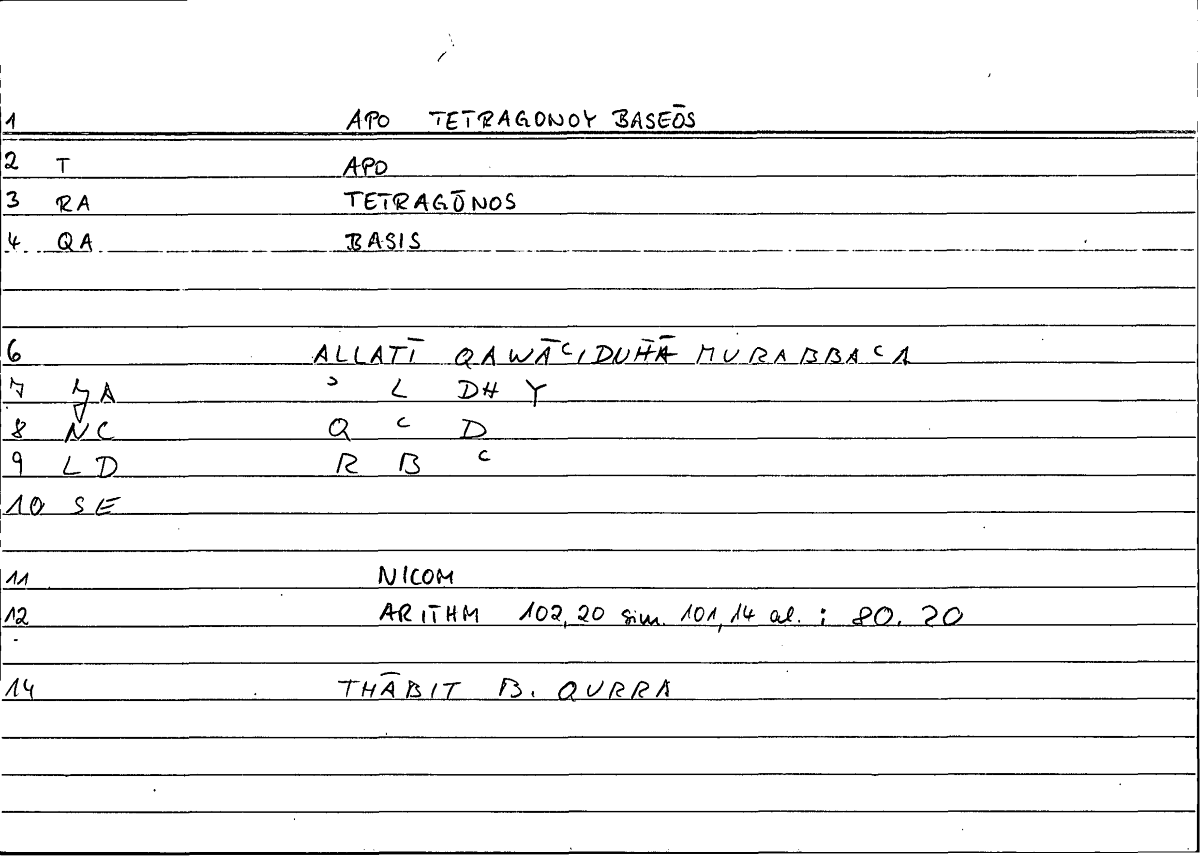 1 APO TETRAGONOY BASEŌS
2 T APO
3 RA TETRAGŌNOS
4 QA BASIS
6 ALLATĪ QAWĀʿIDUHĀ MURABBAʿA
7 A ʾ L DH Y
8 NC Q ʿ D
9 LD R B ʿ
10 SE
11 NICOM
12 ARITHM 102,20 sim. 101,14 al. : 80. 20
14 THĀBIT B. QURRA